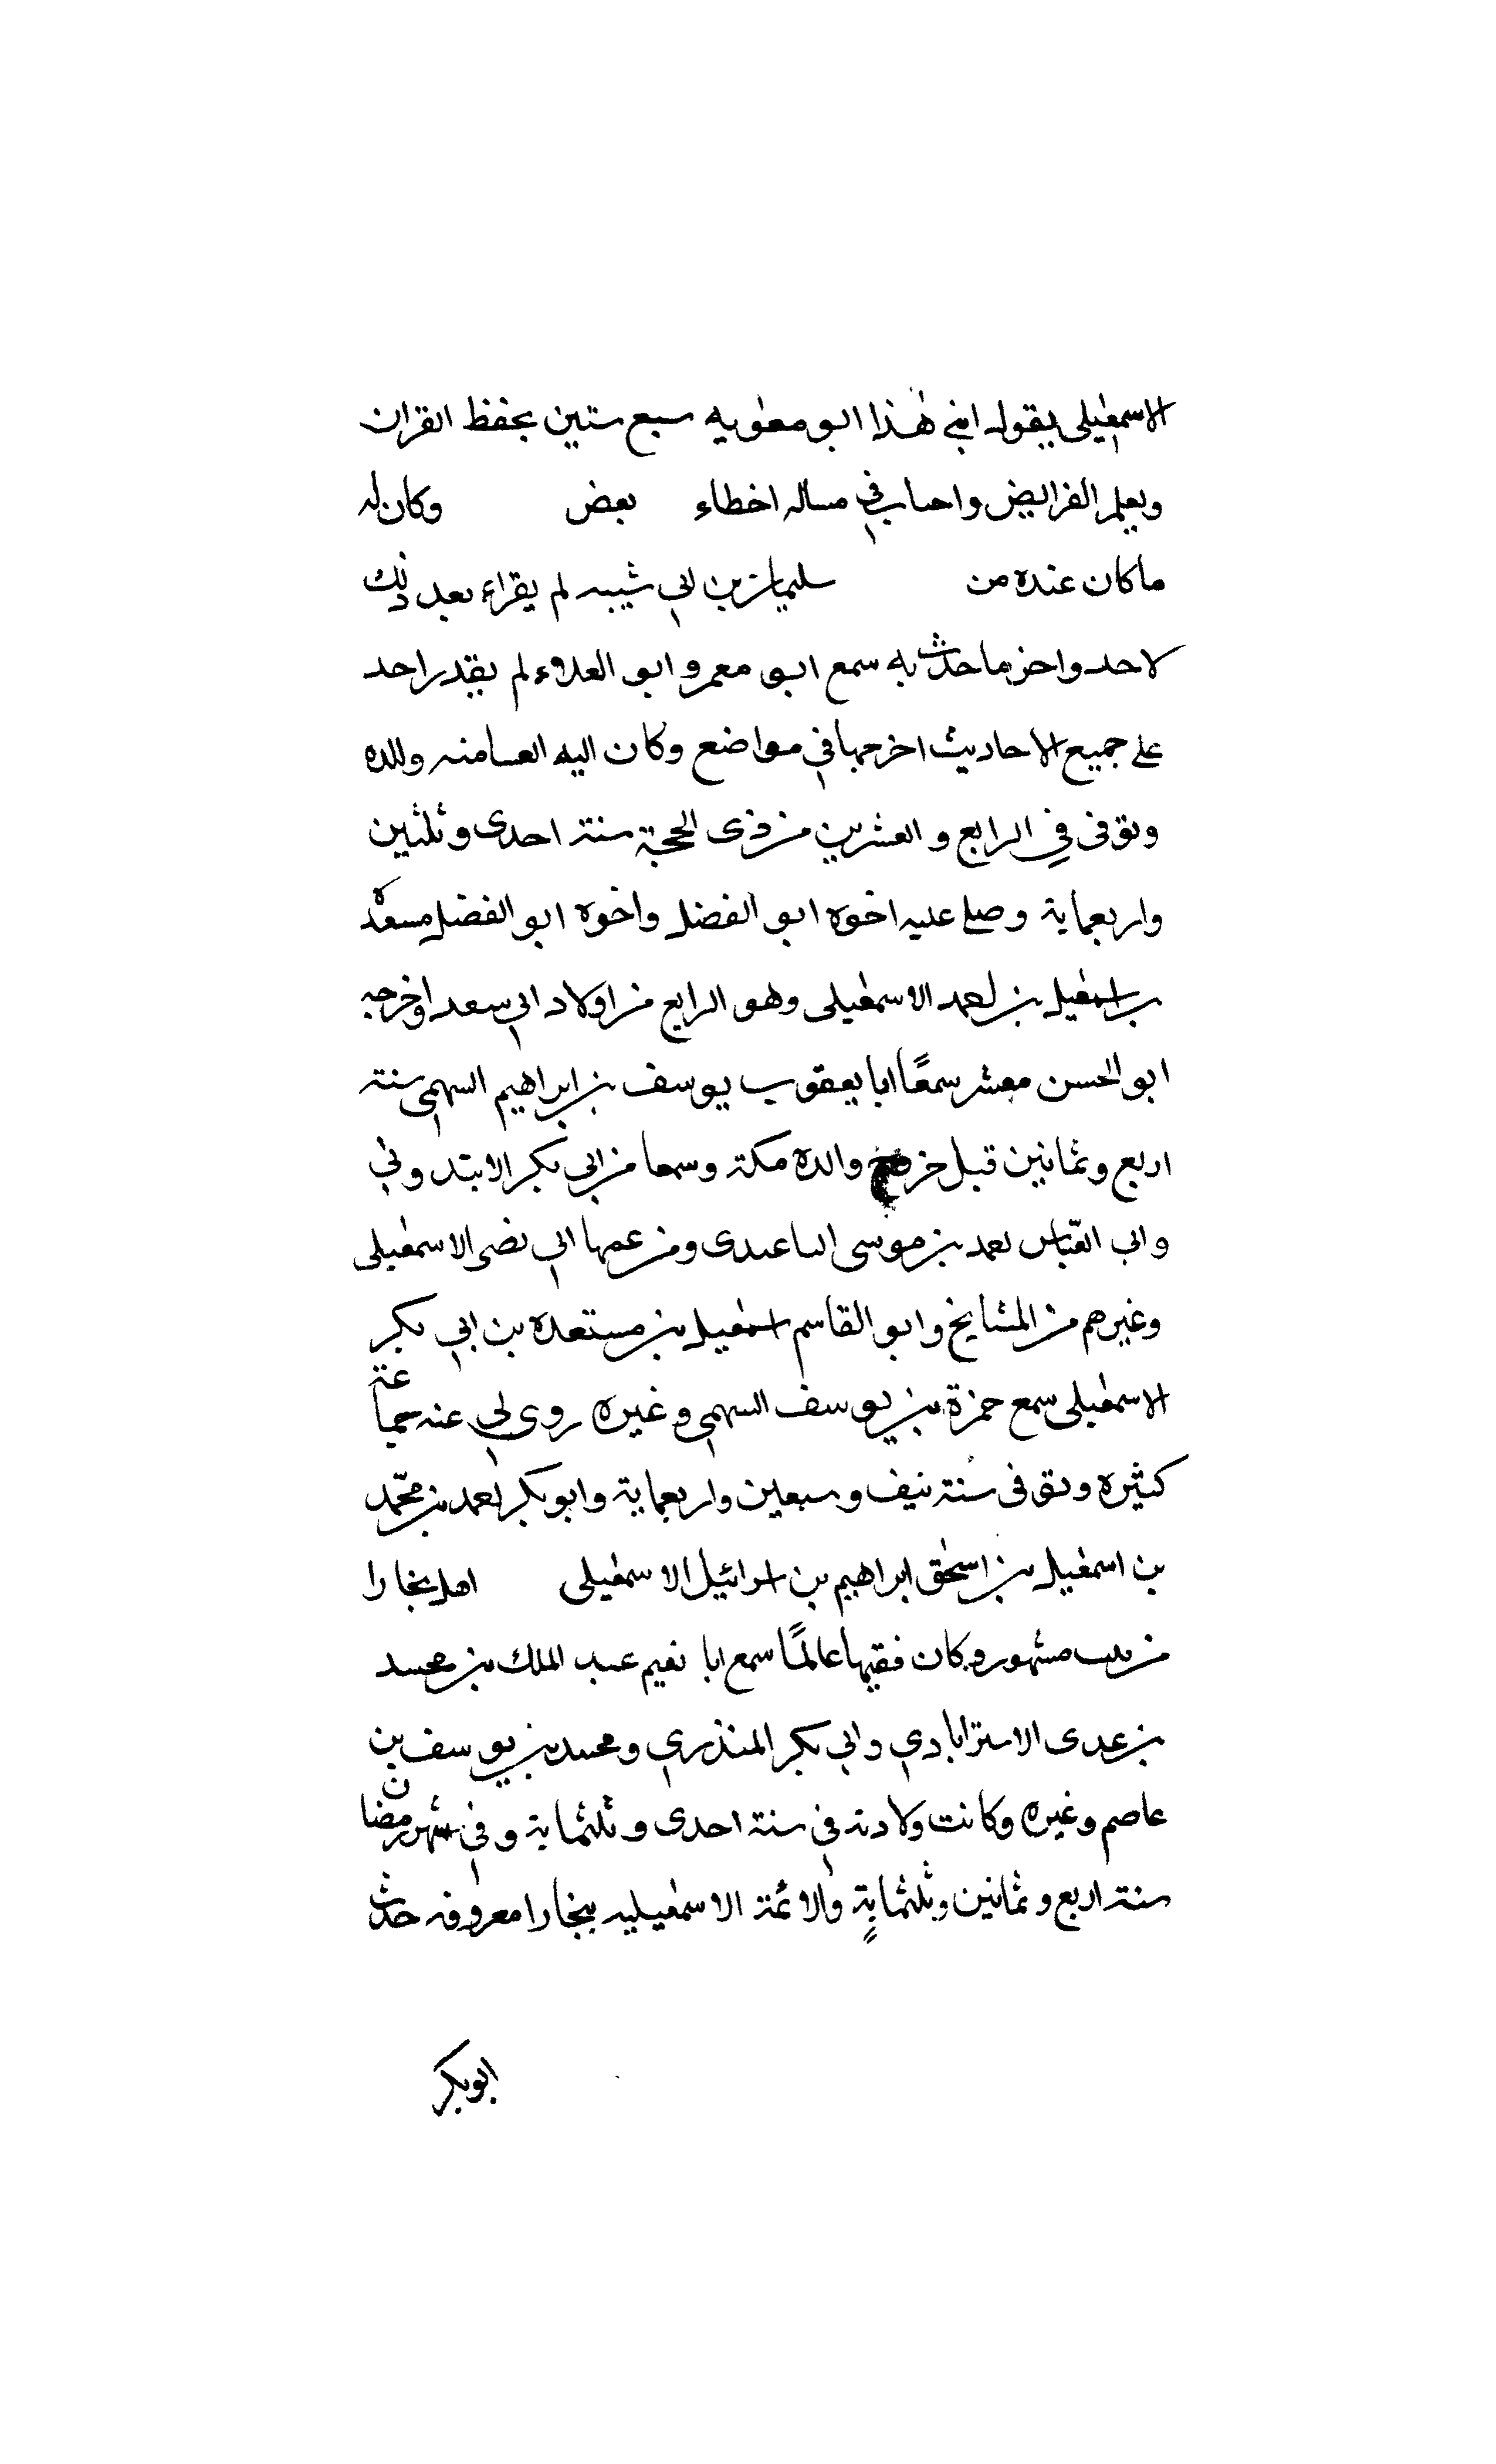 الاسمعيلى يقول ابنى هذا ابو معويه سبع سنين يحفظ القران
ويعلم الفرايض واصاب في مساله اخطاء بعض وكان له
ما كان عنده من سليمان بن ابي شيبه لم يقراء بعد ذلك
لاحد واخر ما حدث به سمع ابو معمر و ابو العلاء لم يقدر احد
على جميع الاحاديث اخرجها في مواضع وكان اليه منه
وتوفى في الرابع و العشرين من ذى الحجة سنة احدى وثلثين
واربعماية وصلى عليه اخوه ابو الفضل واخوه ابو الفضل مسعدة
بن اسمعيل بن احمد الاسمعيلى وهو الرابع من اولاد ابي سعد اخرجه
ابو الحسن معشر سمعًا ابا يعقوب يوسف بن ابراهيم السهمى سنة
اربع وثمانين قبل والده مكة وسمعا من ابي بكر
وابى العباس احمد بن موسى الباعدى ومن عمها ابي نصر الاسمعيلى
وغيرهم من المشايخ وابو القاسم اسمعيل بن مستعده بن ابي بكر
الاسمعيلى سمع حمزة بن يوسف السهمى وغيره روى لي عنه جماعة
كثيره وتوفى سنة نيف وسبعين واربعماية وابو بكر احمد بن محمد
بن اسمعيل بن اسحق ابراهيم بن اسرائيل الاسمعيلى اهل بخارا
من بيت مشهور وكان فقيها عالمًا سمع ابا نعيم عبد الملك بن محمد
بن عدى الاسترابادي وابي بكر المنذري ومحمد بن يوسف بن
عاصم وغيره وكانت ولادته في سنة احدى وثلثماية وفي شهر رمضان
سنة اربع وثمانين وثلثماية والائمة الاسمعيليه ببخارا معروفه حدث
ابو بكر